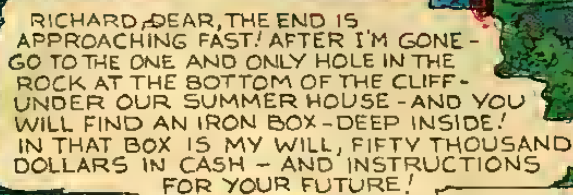 RICHARD, DEAR, THE END IS
APPROACHING FAST! AFTER I'M GONE-
GO TO THE ONE AND ONLY HOLE IN THE
ROCK AT THE BOTTOM OF THE CLIFF-
UNDER OUR SUMMER HOUSE - AND YOU
WILL FIND AN IRON BOX - DEEP INSIDE!
IN THAT BOX IS MY WILL, FIFTY THOUSAND
DOLLARS IN CASH - AND INSTRUCTIONS
FOR YOUR FUTURE!